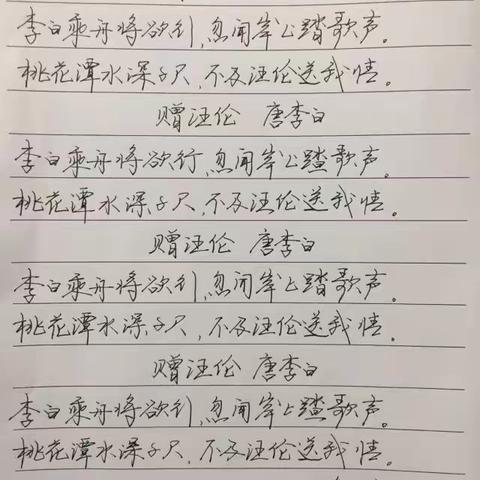 李白乘舟将欲行,忽闻岸上踏歌声。
桃花潭水深千尺,不及汪伦送我情。
赠汪伦 唐李白
李白乘舟将欲行,忽闻岸上踏歌声。
桃花潭水深千尺,不及汪伦送我情。
赠汪伦 唐李白
李白乘舟将欲行,忽闻岸上踏歌声。
桃花潭水深千尺,不及汪伦送我情。
赠汪伦 唐李白
李白乘舟将欲行,忽闻岸上踏歌声。
桃花潭水深千尺,不及汪伦送我情。